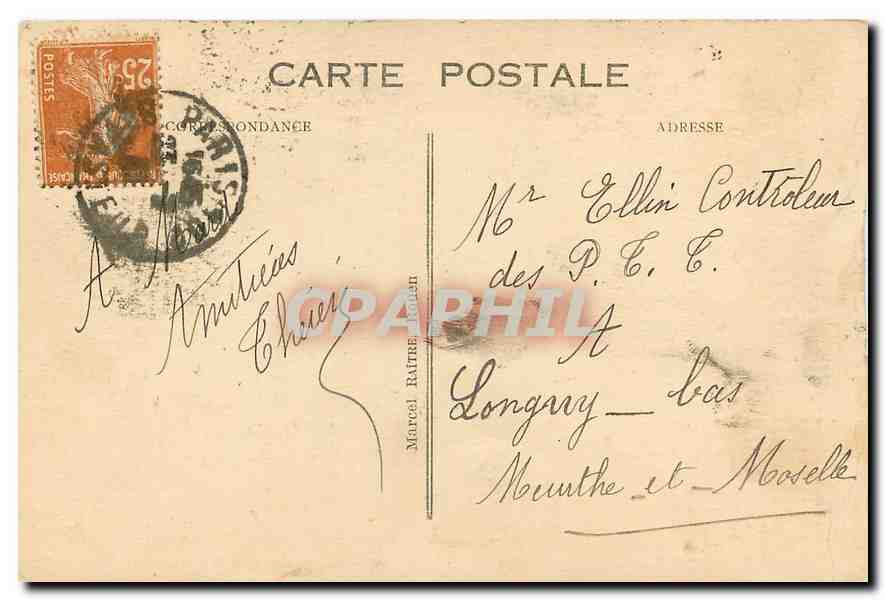 CARTE POSTALE
25c
POSTES
PARIS
CORRESPONDANCE
ADRESSE
A
Amitiées
Mr Ellin Controleur
des P. T. T.
A
Longwy _ bas
Meurthe _ et _ Moselle
Marcel RAÎTRE, Rouen
CPAPHIL